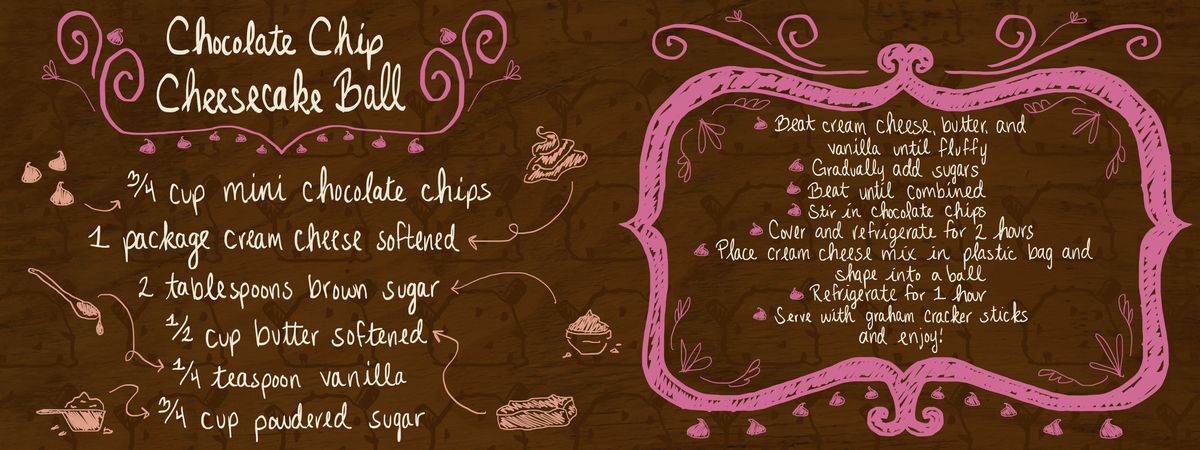 Chocolate Chip
Cheesecake Ball
3/4 cup mini chocolate chips
1 package cream cheese softened
2 tablespoons brown sugar
1/2 cup butter softened
1/4 teaspoon vanilla
3/4 cup powdered sugar
Beat cream cheese, butter, and
vanilla until fluffy
Gradually add sugars
Beat until combined
Stir in chocolate chips
Cover and refrigerate for 2 hours
Place cream cheese mix in plastic bag and
shape into a ball
Refrigerate for 1 hour
Serve with graham cracker sticks
and enjoy!